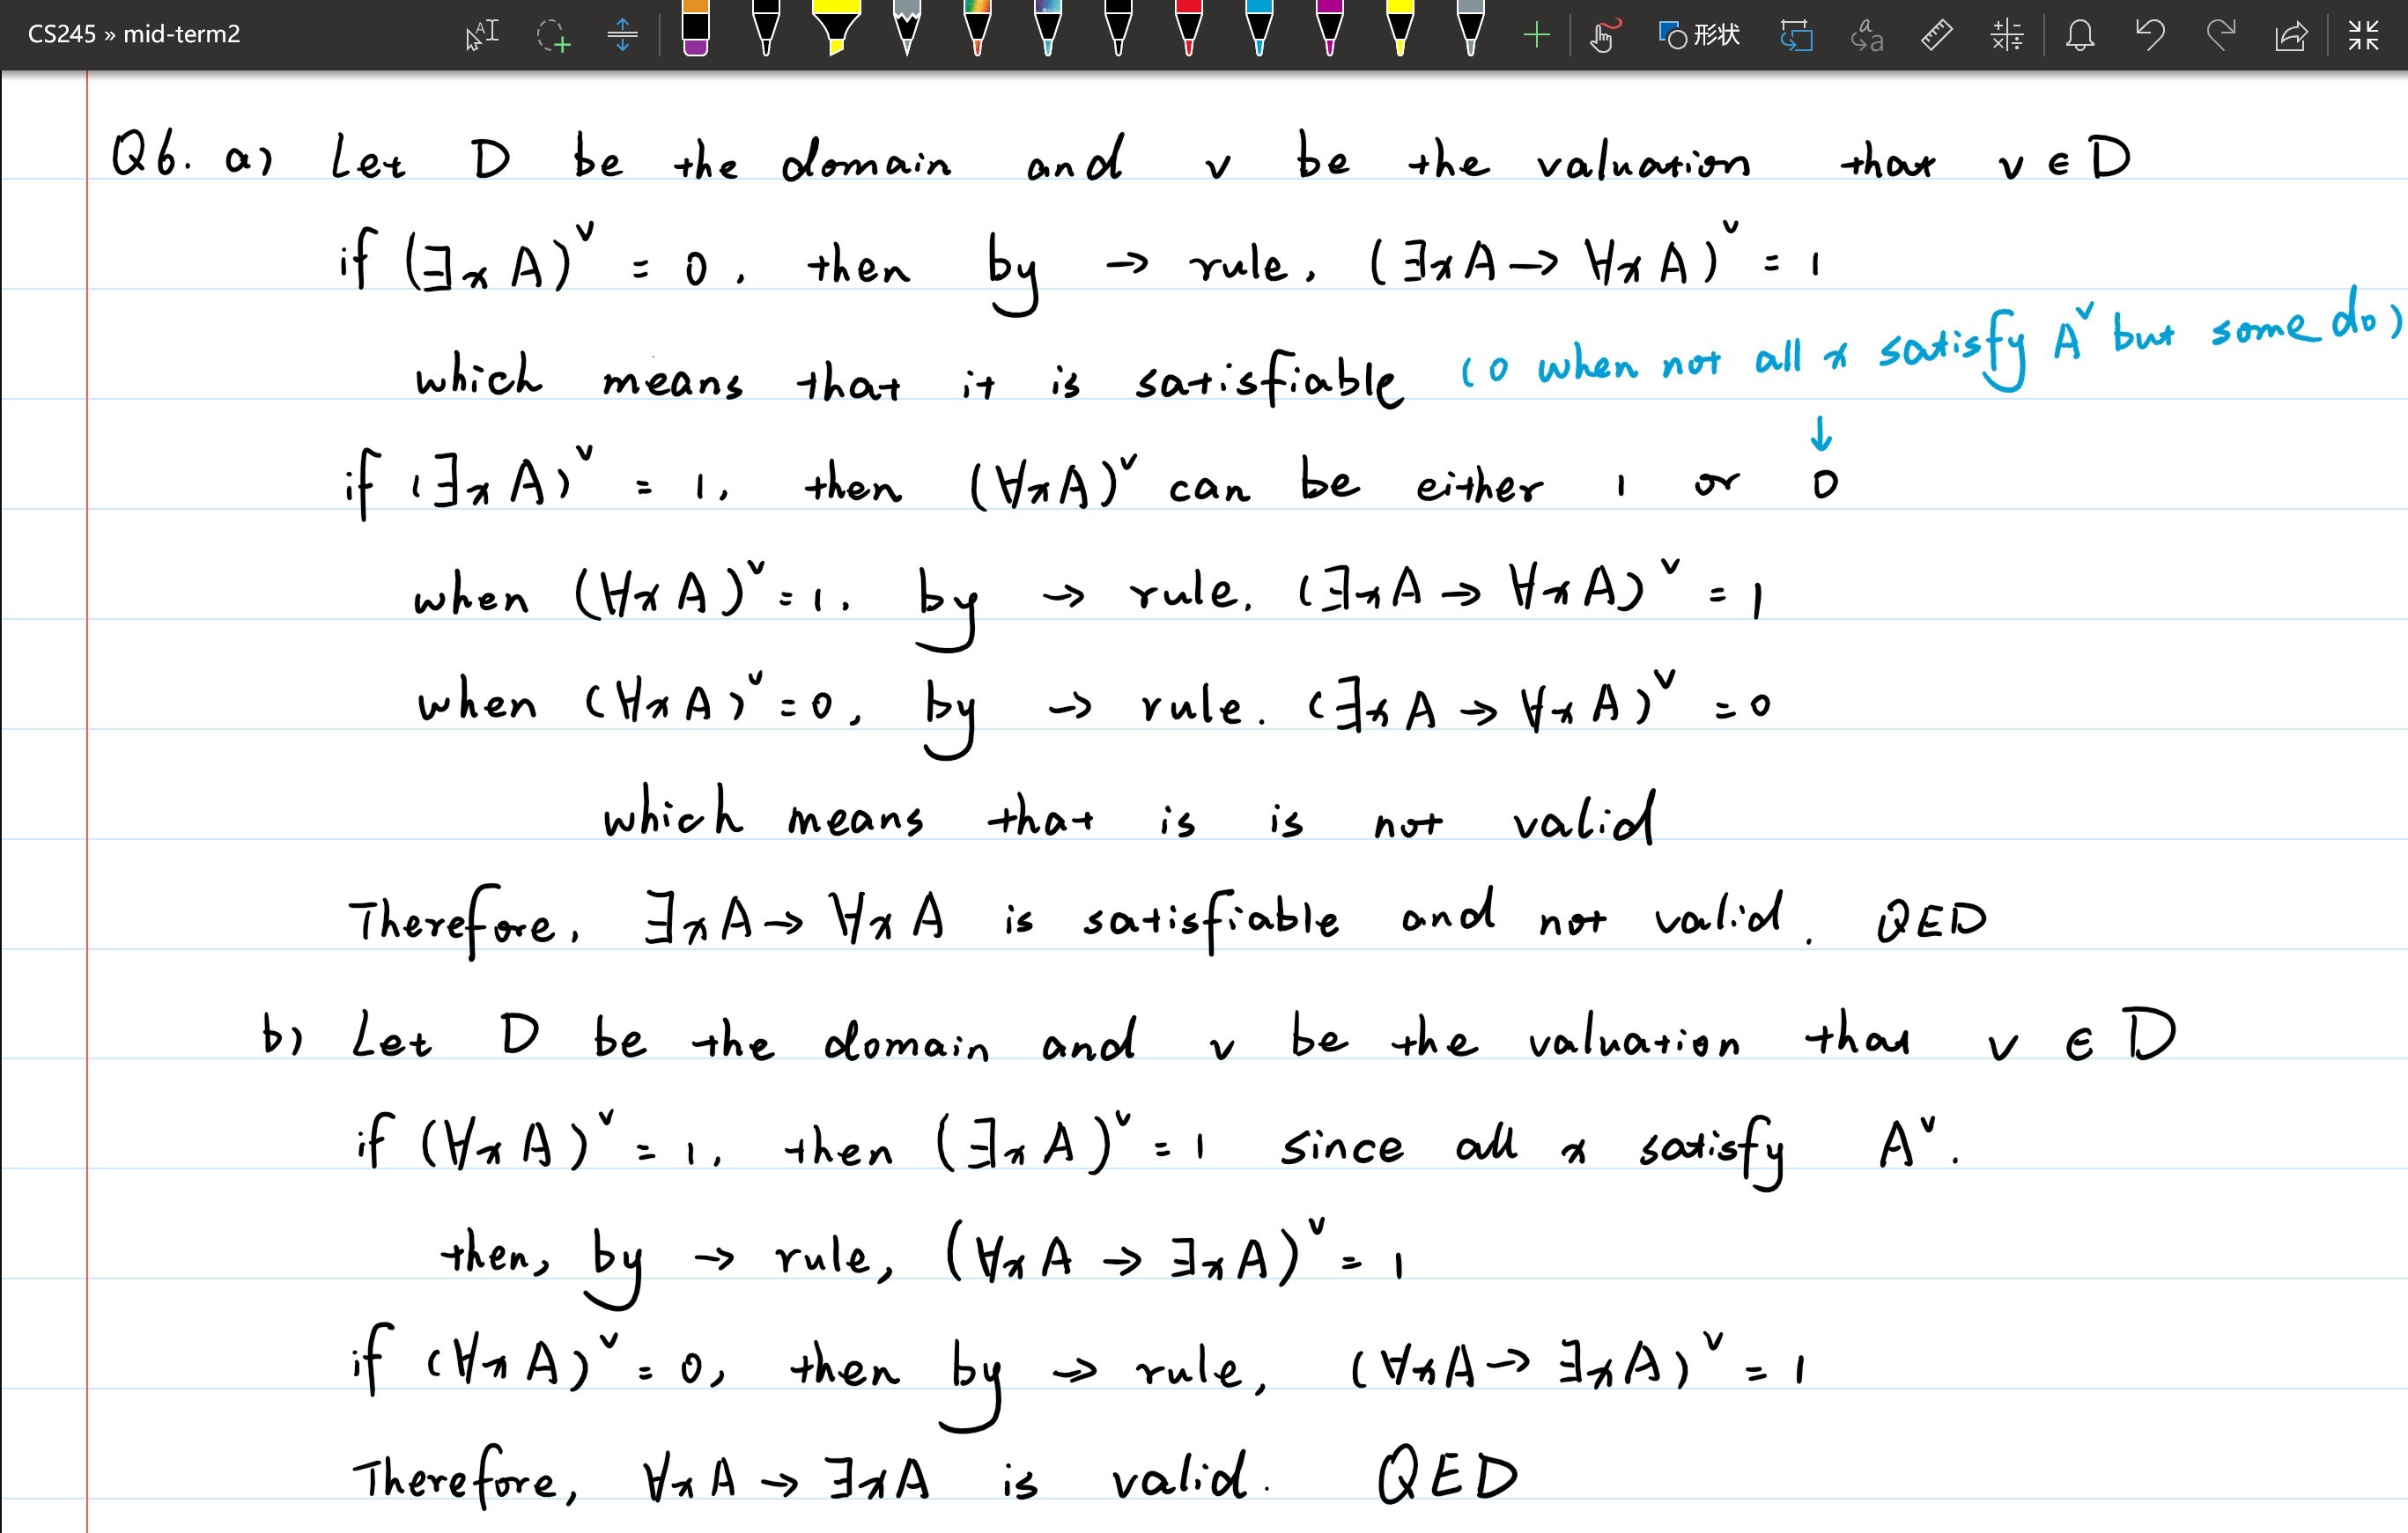 CS245 » mid-term2
形状
Q6. a) Let D be the domain and v be the valuation that v ∈ D
if (∃x A)ᵛ = 0, then by → rule, (∃x A → ∀x A)ᵛ = 1
which means that it is satisfiable (0 when not all x satisfy Aᵛ but some do)
↓
if (∃x A)ᵛ = 1, then (∀x A)ᵛ can be either 1 or 0
when (∀x A)ᵛ = 1, by → rule, (∃x A → ∀x A)ᵛ = 1
when (∀x A)ᵛ = 0, by → rule. (∃x A → ∀x A)ᵛ = 0
which means that is is not valid
Therefore, ∃x A → ∀x A is satisfiable and not valid. QED
b) Let D be the domain and v be the valuation that v ∈ D
if (∀x A)ᵛ = 1, then (∃x A)ᵛ = 1 since all x satisfy Aᵛ.
then, by → rule, (∀x A → ∃x A)ᵛ = 1
if (∀x A)ᵛ = 0, then by → rule, (∀x A → ∃x A)ᵛ = 1
Therefore, ∀x A → ∃x A is valid. QED